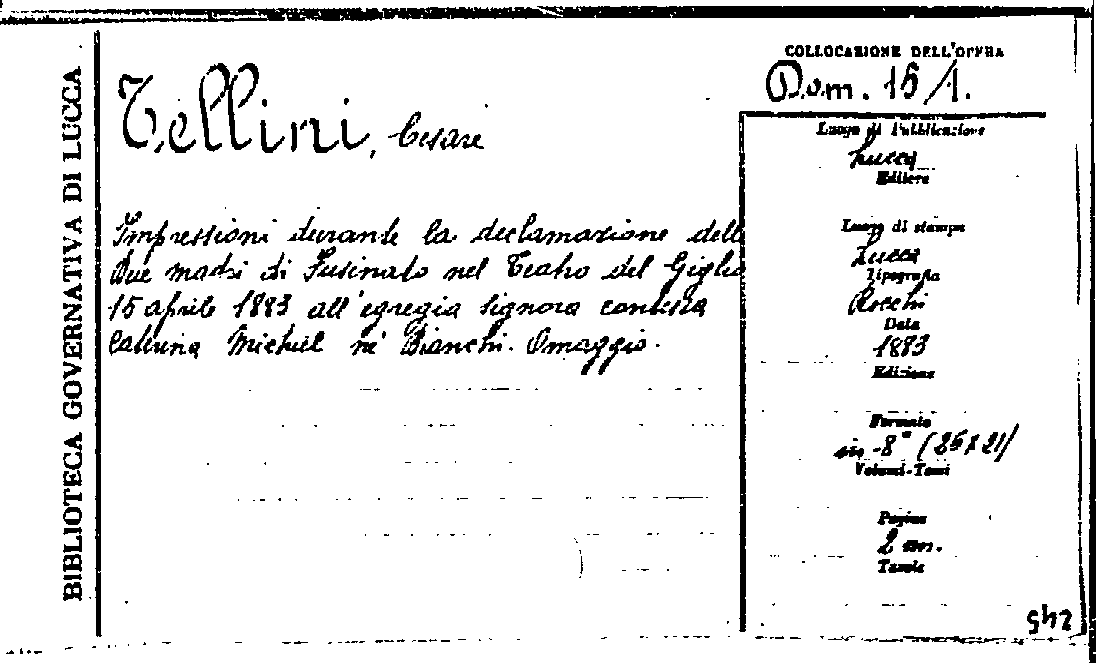 BIBLIOTECA GOVERNATIVA DI LUCCA
Tellini, Cesare
Impressioni durante la declamazione delle
due madri di Fusinato nel Teatro del Giglio
15 aprile 1883 all'egregia signora contessa
Caterina Michiel né Bianchi. Omaggio.
COLLOCAZIONE DELL'OPERA
Dom. 15/1.
Luogo di Pubblicazione
Lucca
Editore
Luogo di stampa
Lucca
Tipografia
Rocchi
Data
1883
Edizione
Formato
in-8° (25x21)
Volumi-Tomi
Pagine
2 nn.
Tavole
245